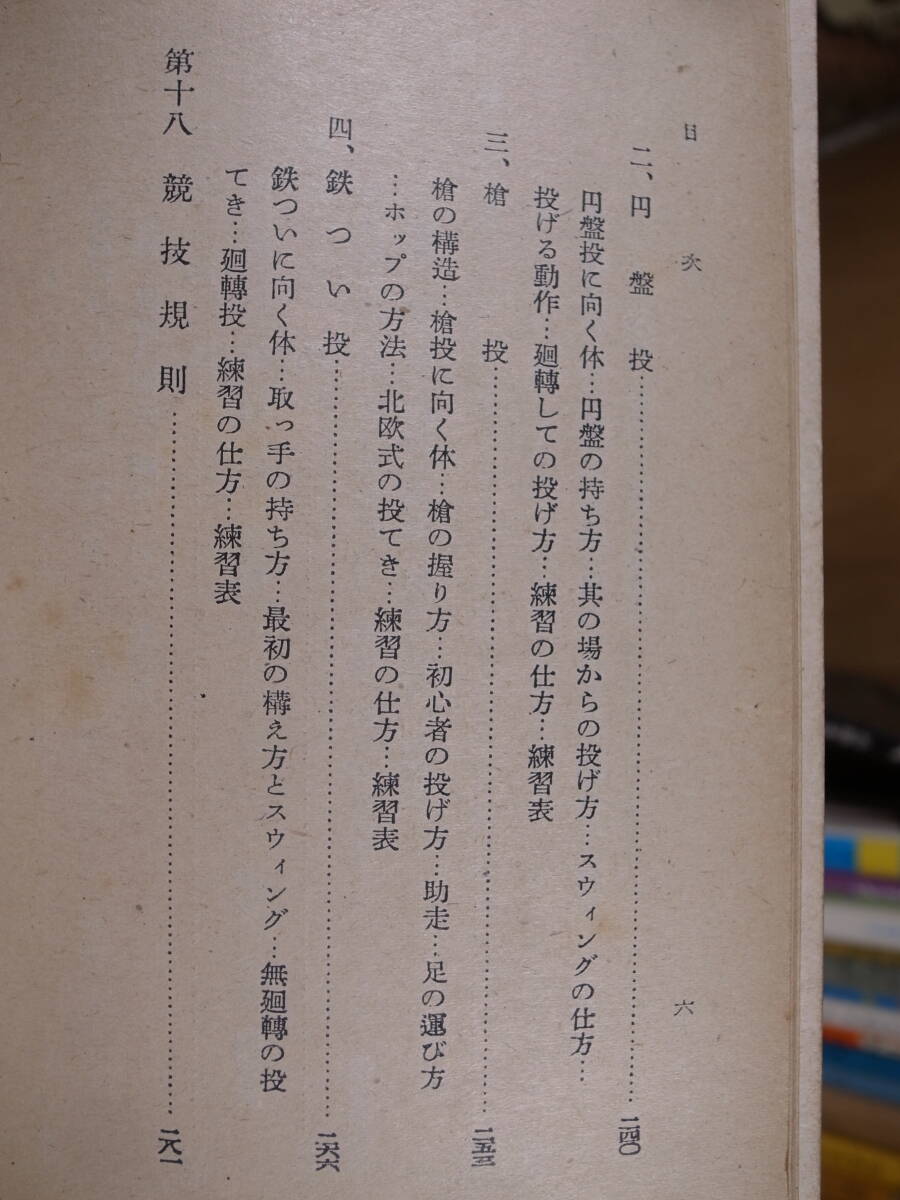 目次
六
二、円盤投……一四〇
円盤投に向く体…円盤の持ち方…其の場からの投げ方…スウィングの仕方…
投げる動作…廻轉しての投げ方…練習の仕方…練習表
三、槍投……一五三
槍の構造…槍投に向く体…槍の握り方…初心者の投げ方…助走…足の運び方
…ホップの方法…北欧式の投てき…練習の仕方…練習表
四、鉄つい投……一六六
鉄ついに向く体…取っ手の持ち方…最初の構え方とスウィング…無廻轉の投
てき…廻轉投…練習の仕方…練習表
第十八 競技規則……一八一